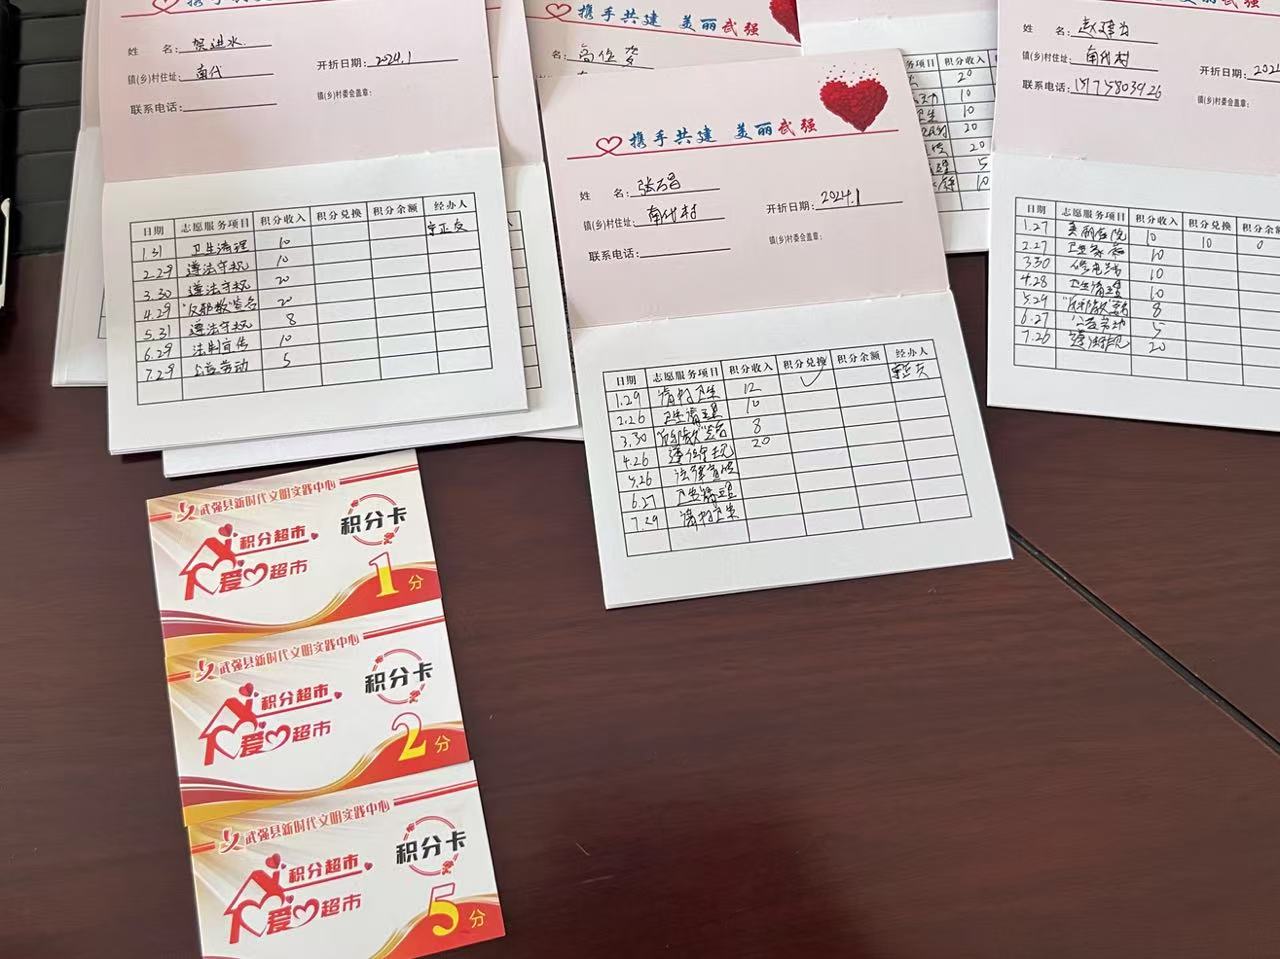 姓 名: 贺进水
镇(乡)村住址: 南代
联系电话:
开折日期: 2024.1
镇(乡)村委会盖章:
日期 志愿服务项目 积分收入 积分兑换 积分余额 经办人
1.31 卫生清理 10
2.29 遵法守规 10
3.30 遵法守规 20
4.29 "反邪教"签名 20
5.31 遵法守规 8
6.29 法制宣传 10
7.29 公益劳动 5
携手共建 美丽武强
名:
携手共建 美丽武强
姓 名:
镇(乡)村住址: 南代村
联系电话:
开折日期: 2024.1
镇(乡)村委会盖章:
日期 志愿服务项目 积分收入 积分兑换 积分余额 经办人
1.29 12
2.26 卫生清理 10
3.30 "反邪教"签名 8
4.26 遵纪守规 20
5.26 法律宣传
6.27 卫生清理
7.29
务项目 积分收入
20
10
10
20
20
5
10
姓 名:
镇(乡)村住址: 南代村
联系电话: 15175803926
开折日期: 2024
镇(乡)村委会盖章:
日期 志愿服务项目 积分收入 积分兑换 积分余额
1.27 美丽庭院 10 10 0
2.27 10
3.30 10
4.28 卫生清理 10
5.29 "反邪教"签名 8
6.27 公益劳动 5
7.26 遵法守规 20
武强县新时代文明实践中心
积分超市
爱心超市
积分卡
1分
武强县新时代文明实践中心
积分超市
爱心超市
积分卡
2分
武强县新时代文明实践中心
积分超市
爱心超市
积分卡
5分